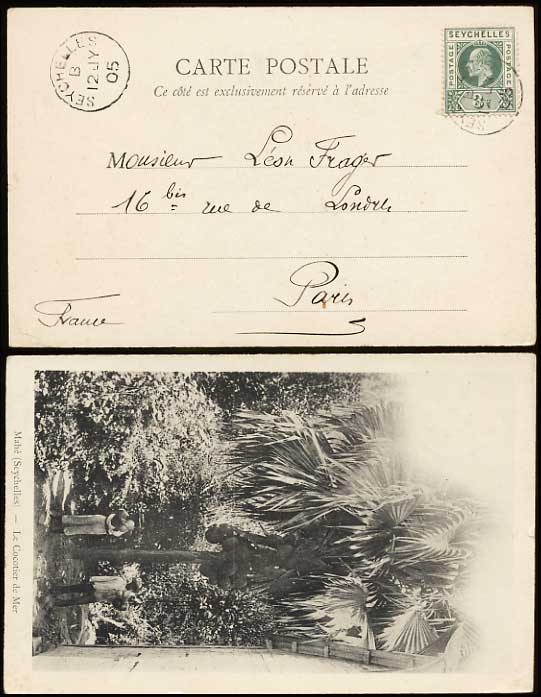 SEYCHELLES
B
12 JY
05
SEYCHELLES
POSTAGE
POSTAGE
CARTE POSTALE
Ce côté est exclusivement réservé à l'adresse
Monsieur Léon Frager
16 bis rue de Londres
Paris
France
Mahé (Seychelles) — Le Cocotier de Mer